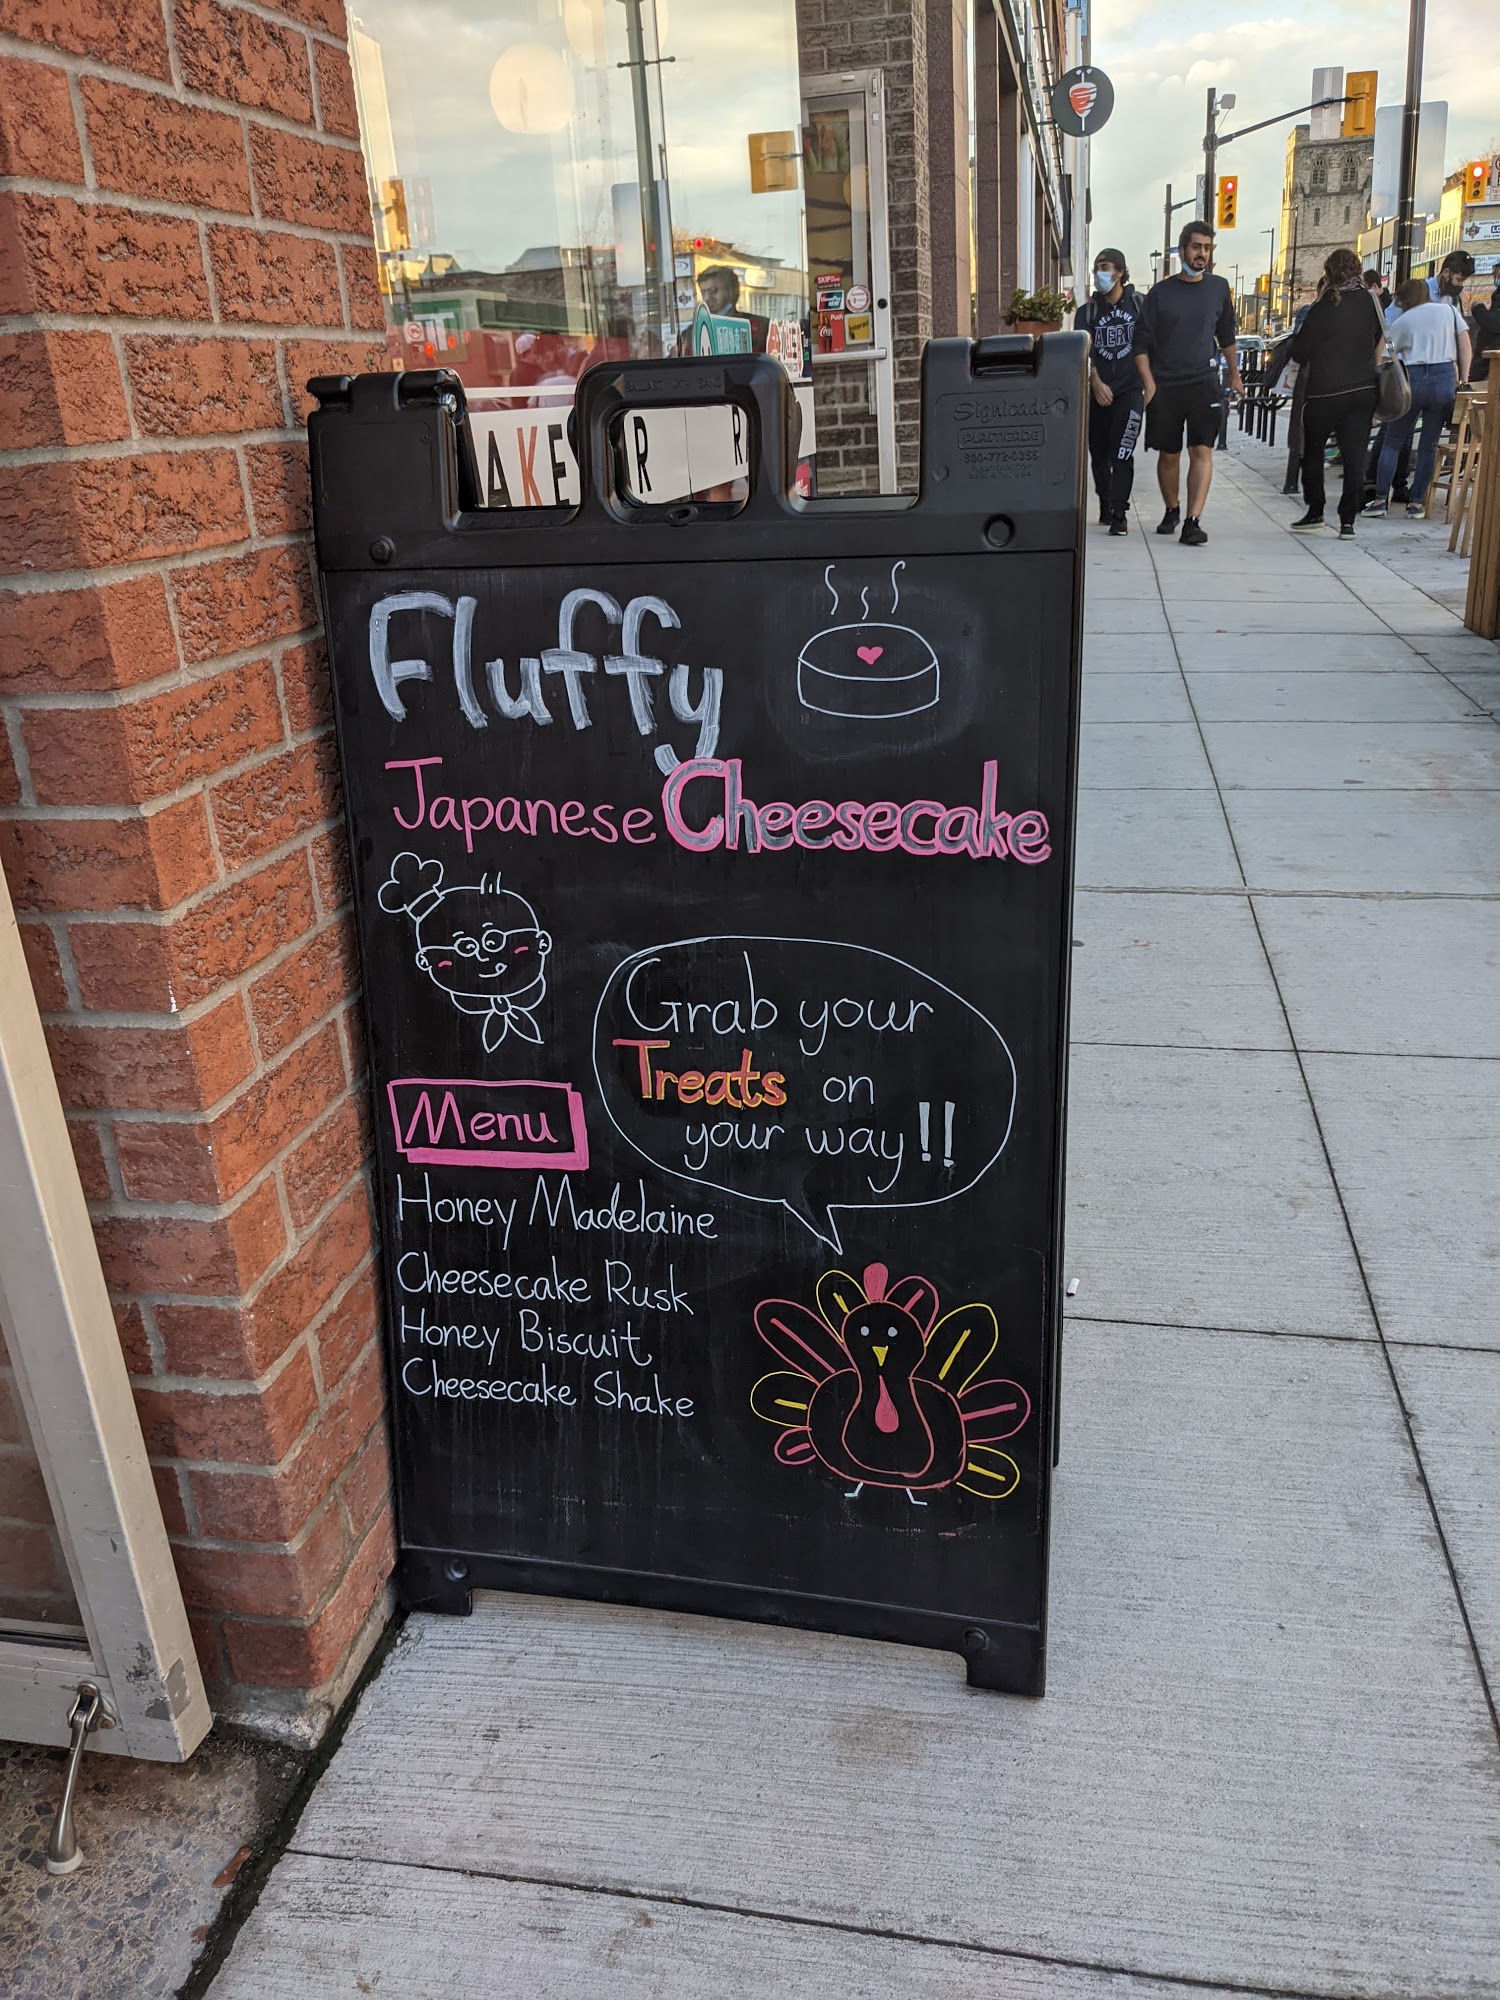 SKIP
Push
AKE R R
BALLAST WITH SAND
Signicade
PLASTICADE
800-772-0355
AERO
87
Fluffy
Japanese Cheesecake
Grab your
Treats on
your way!!
Menu
Honey Madelaine
Cheesecake Rusk
Honey Biscuit
Cheesecake Shake